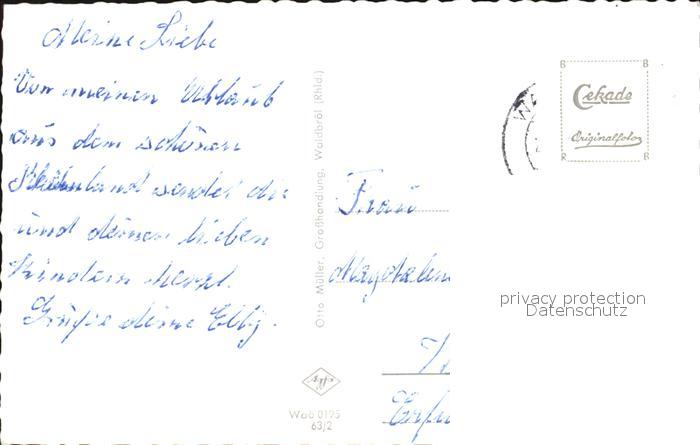 Meine Liebe
Von meinen Urlaub
aus dem schönen
Rheinland sendet dir
und deinen lieben
Kindern herzl.
Grüße deine Elly.
Otto Müller, Großhandlung, Waldbröl (Rhld.)
Agfa
Wab 0195
63/2
B B
Cekade
Originalfoto
R B
WA
Frau
Magdalen
Erfu
privacy protection
Datenschutz